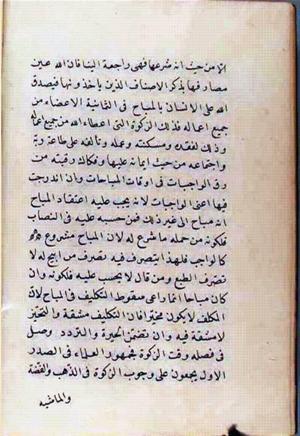 الا من حيث انه شرعها فهى راجعة الينا فان الله عين
مصارفها بذكر الاصناف الذين ياخذونها فيصدق
الله على الانسان بالمباح فى الثمانية الاعضاء من
جميع اعماله فذلك الزكوة التى اعطاه الله من جميع اعماله
وذلك لفقره ومسكنته وعمله وتالفه على طاعة ربه
واجتماعه من حيث ايمانه عليها وفكاك رقبته من
رق الواجبات فى اوقات المباحات وان اندرجت
فيها اعنى الواجبات لانه يجب عليه اعتقاد المباح
انه مباح الى غير ذلك فمن حسبه عليه فى النصاب
فلكونه من جمله ما شرع له لان المباح مشروع
كالواجب فلهذا يتصرف فيه تصرف من ابيح له لا
تصرف الطبع ومن قال لا يحسب عليه فلكونه وان
كان مباحا انما راعى سقوط التكليف فى المباح لان
المكلف لا يكون مخيرا فان التكليف مشقة والتخيير
لا مشقة فيه وان تضمن الحيرة والتردد وصل
فى فصله وقت الزكوة فجمهور العلماء فى الصدر
الاول يجمعون على وجوب الزكوة فى الذهب والفضة
والماشيه